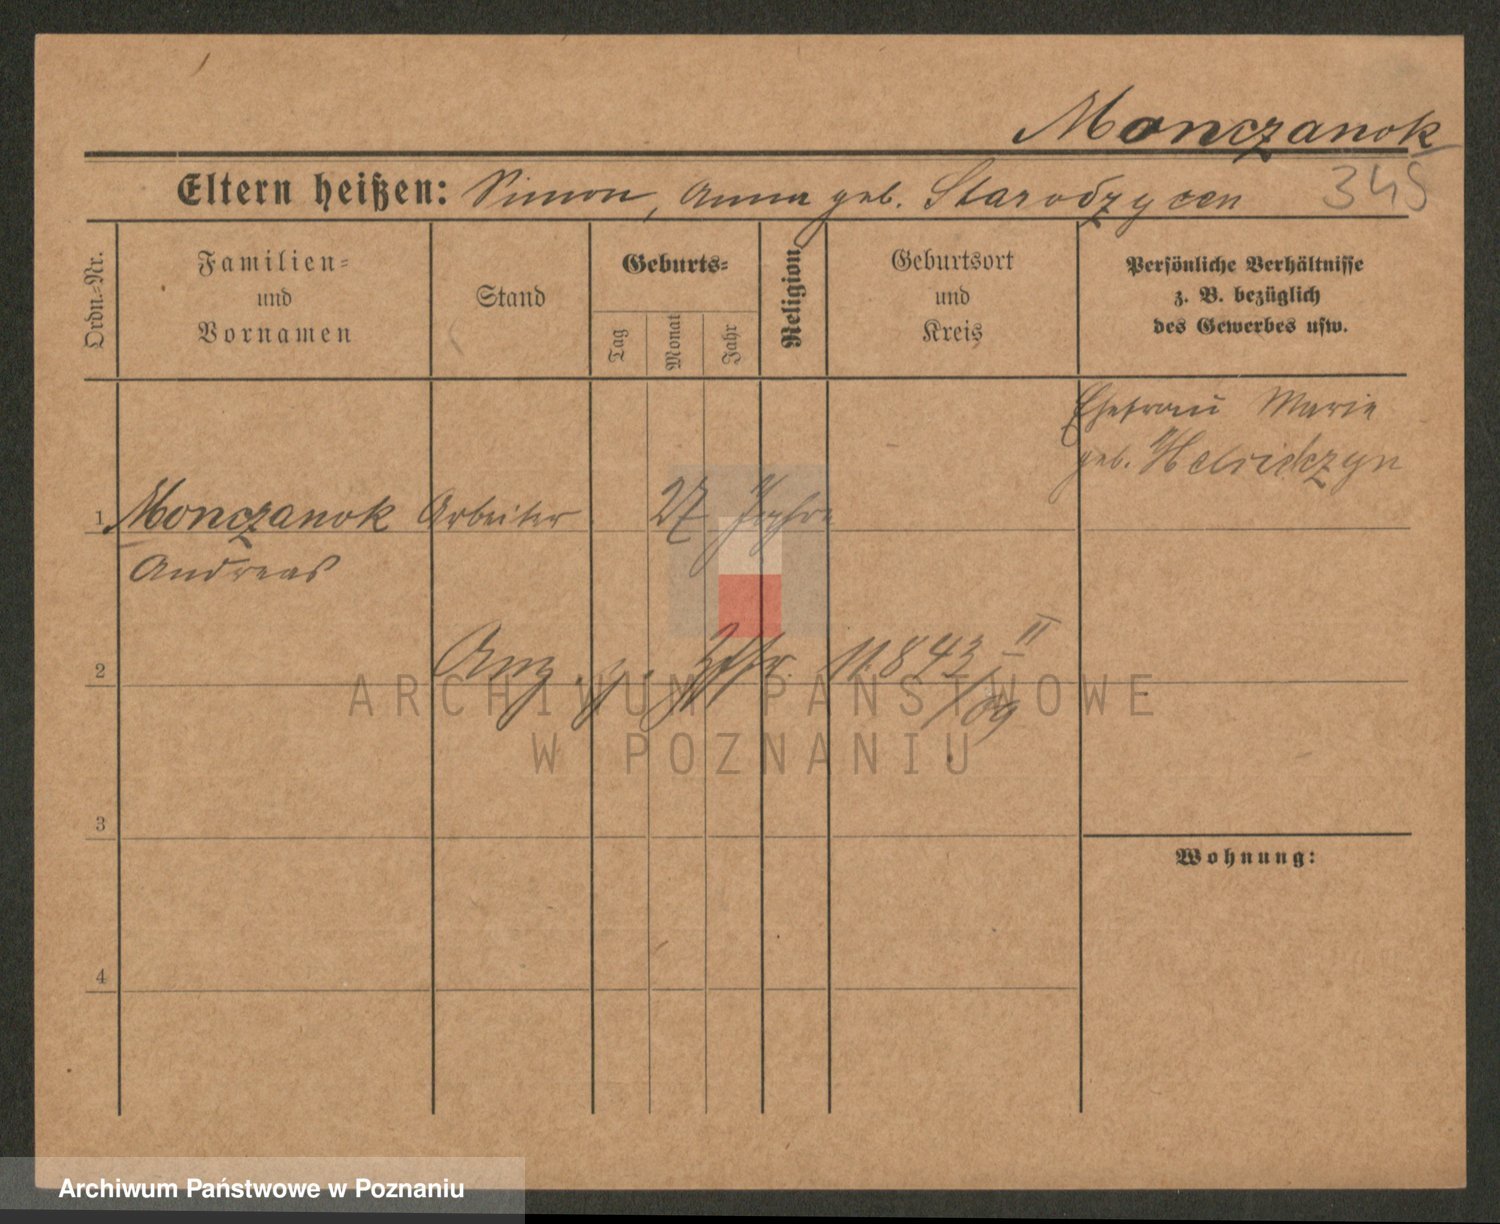 Monczanok
Eltern heißen: Simon, Anna geb. Starodzycen
345
Ordn.-Nr.
Familien-
und
Vornamen
Stand
Geburts-
Tag
Monat
Jahr
Religion
Geburtsort
und
Kreis
Persönliche Verhältnisse
z. B. bezüglich
des Gewerbes usw.
Ehefrau Marie
geb.
1 Monczanok Arbeiter 27 Jahre
Andreas
2 Anz. 11.843 II
/09
3
4
Wohnung:
ARCHIWUM PAŃSTWOWE
W POZNANIU
Archiwum Państwowe w Poznaniu